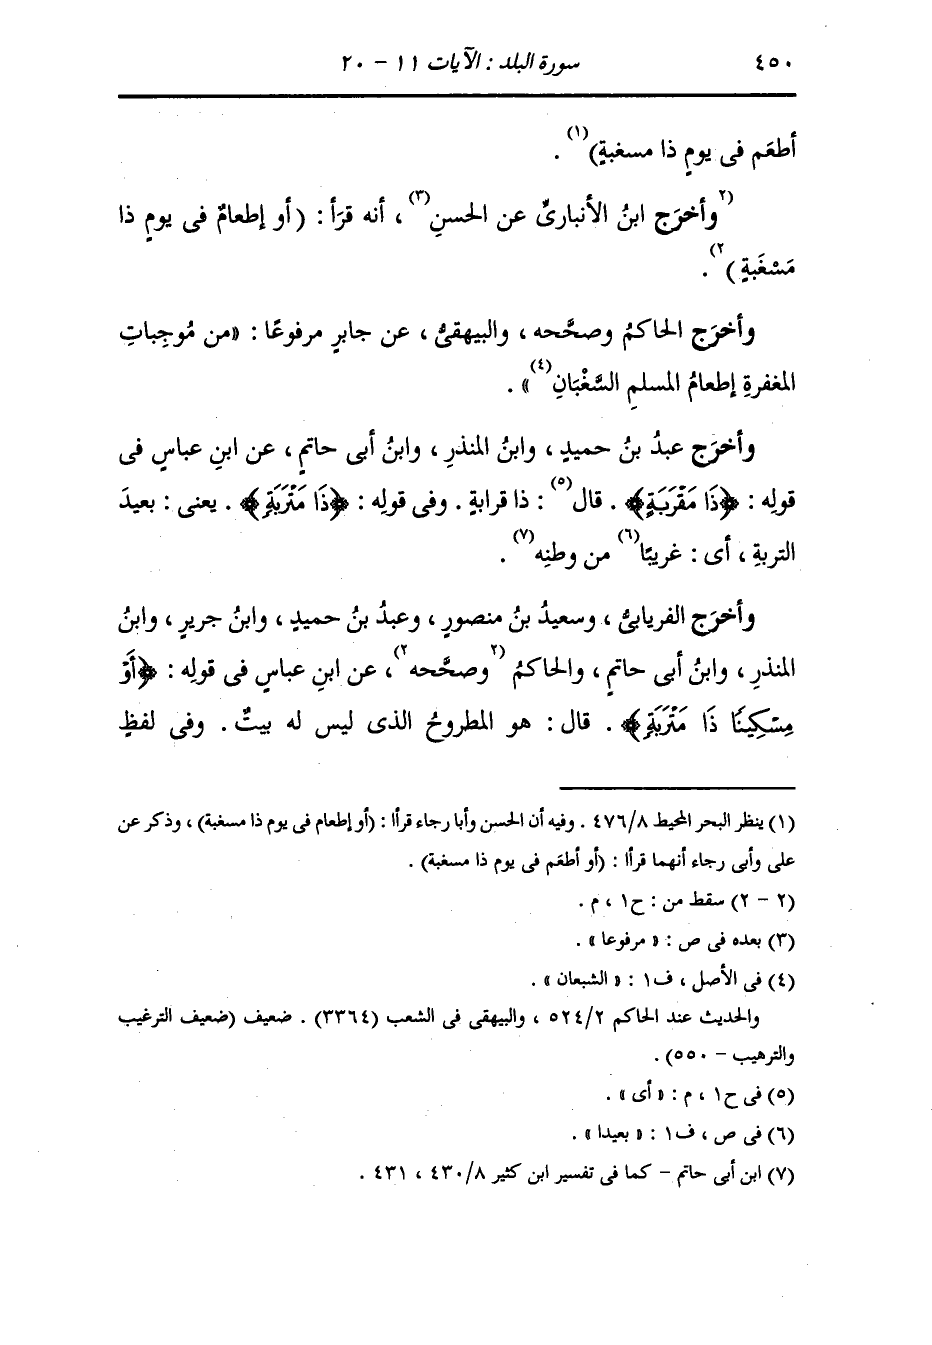 ٤٥٠ سورة البلد : الآيات ١١ - ٢٠
أطعَم فى يومٍ ذا مسغبةٍ)(١) .
(٢وأخرَج ابنُ الأنبارىِّ عن الحسنِ(٣) ، أنه قرَأ : (أو إطعامٌ فى يومٍ ذا
مَسْغَبةٍ )٢) .
وأخرَج الحاكمُ وصحَّحه ، والبيهقىُّ ، عن جابرٍ مرفوعًا : «من مُوجِباتِ
المغفرةِ إطعامُ المسلمِ السَّغْبَانِ(٤)» .
وأخرَج عبدُ بنُ حميدٍ ، وابنُ المنذرِ ، وابنُ أبى حاتمٍ ، عن ابنِ عباسٍ فى
قولِه : ﴿ذَا مَقْرَبَةٍ﴾ . قال(٥) : ذا قرابةٍ . وفى قولِه : ﴿ذَا مَتْرَبَةٍ﴾ . يعنى : بعيدَ
التربةِ ، أى : غريبًا(٦) من وطنِه(٧) .
وأخرَج الفريابىُّ ، وسعيدُ بنُ منصورٍ ، وعبدُ بنُ حميدٍ ، وابنُ جريرٍ ، وابنُ
المنذرِ ، وابنُ أبى حاتمٍ ، والحاكمُ (٢وصحَّحه٢) ، عن ابنِ عباسٍ فى قولِه : ﴿أَوْ
مِسْكِينًا ذَا مَتْرَبَةٍ﴾ . قال : هو المطروحُ الذى ليس له بيتٌ . وفى لفظٍ
(١) ينظر البحر المحيط ٤٧٦/٨ . وفيه أن الحسن وأبا رجاء قرأا : (أو إطعام فى يوم ذا مسغبة) ، وذكر عن
على وأبى رجاء أنهما قرأا : (أو أطعَم فى يوم ذا مسغبة) .
(٢ - ٢) سقط من : ح١ ، م .
(٣) بعده فى ص : « مرفوعا » .
(٤) فى الأصل ، ف١ : « الشبعان » .
والحديث عند الحاكم ٥٢٤/٢ ، والبيهقى فى الشعب (٣٣٦٤) . ضعيف (ضعيف الترغيب
والترهيب - ٥٥٠) .
(٥) فى ح١ ، م : « أى » .
(٦) فى ص ، ف١ : « بعيدا » .
(٧) ابن أبى حاتم - كما فى تفسير ابن كثير ٤٣٠/٨ ، ٤٣١ .